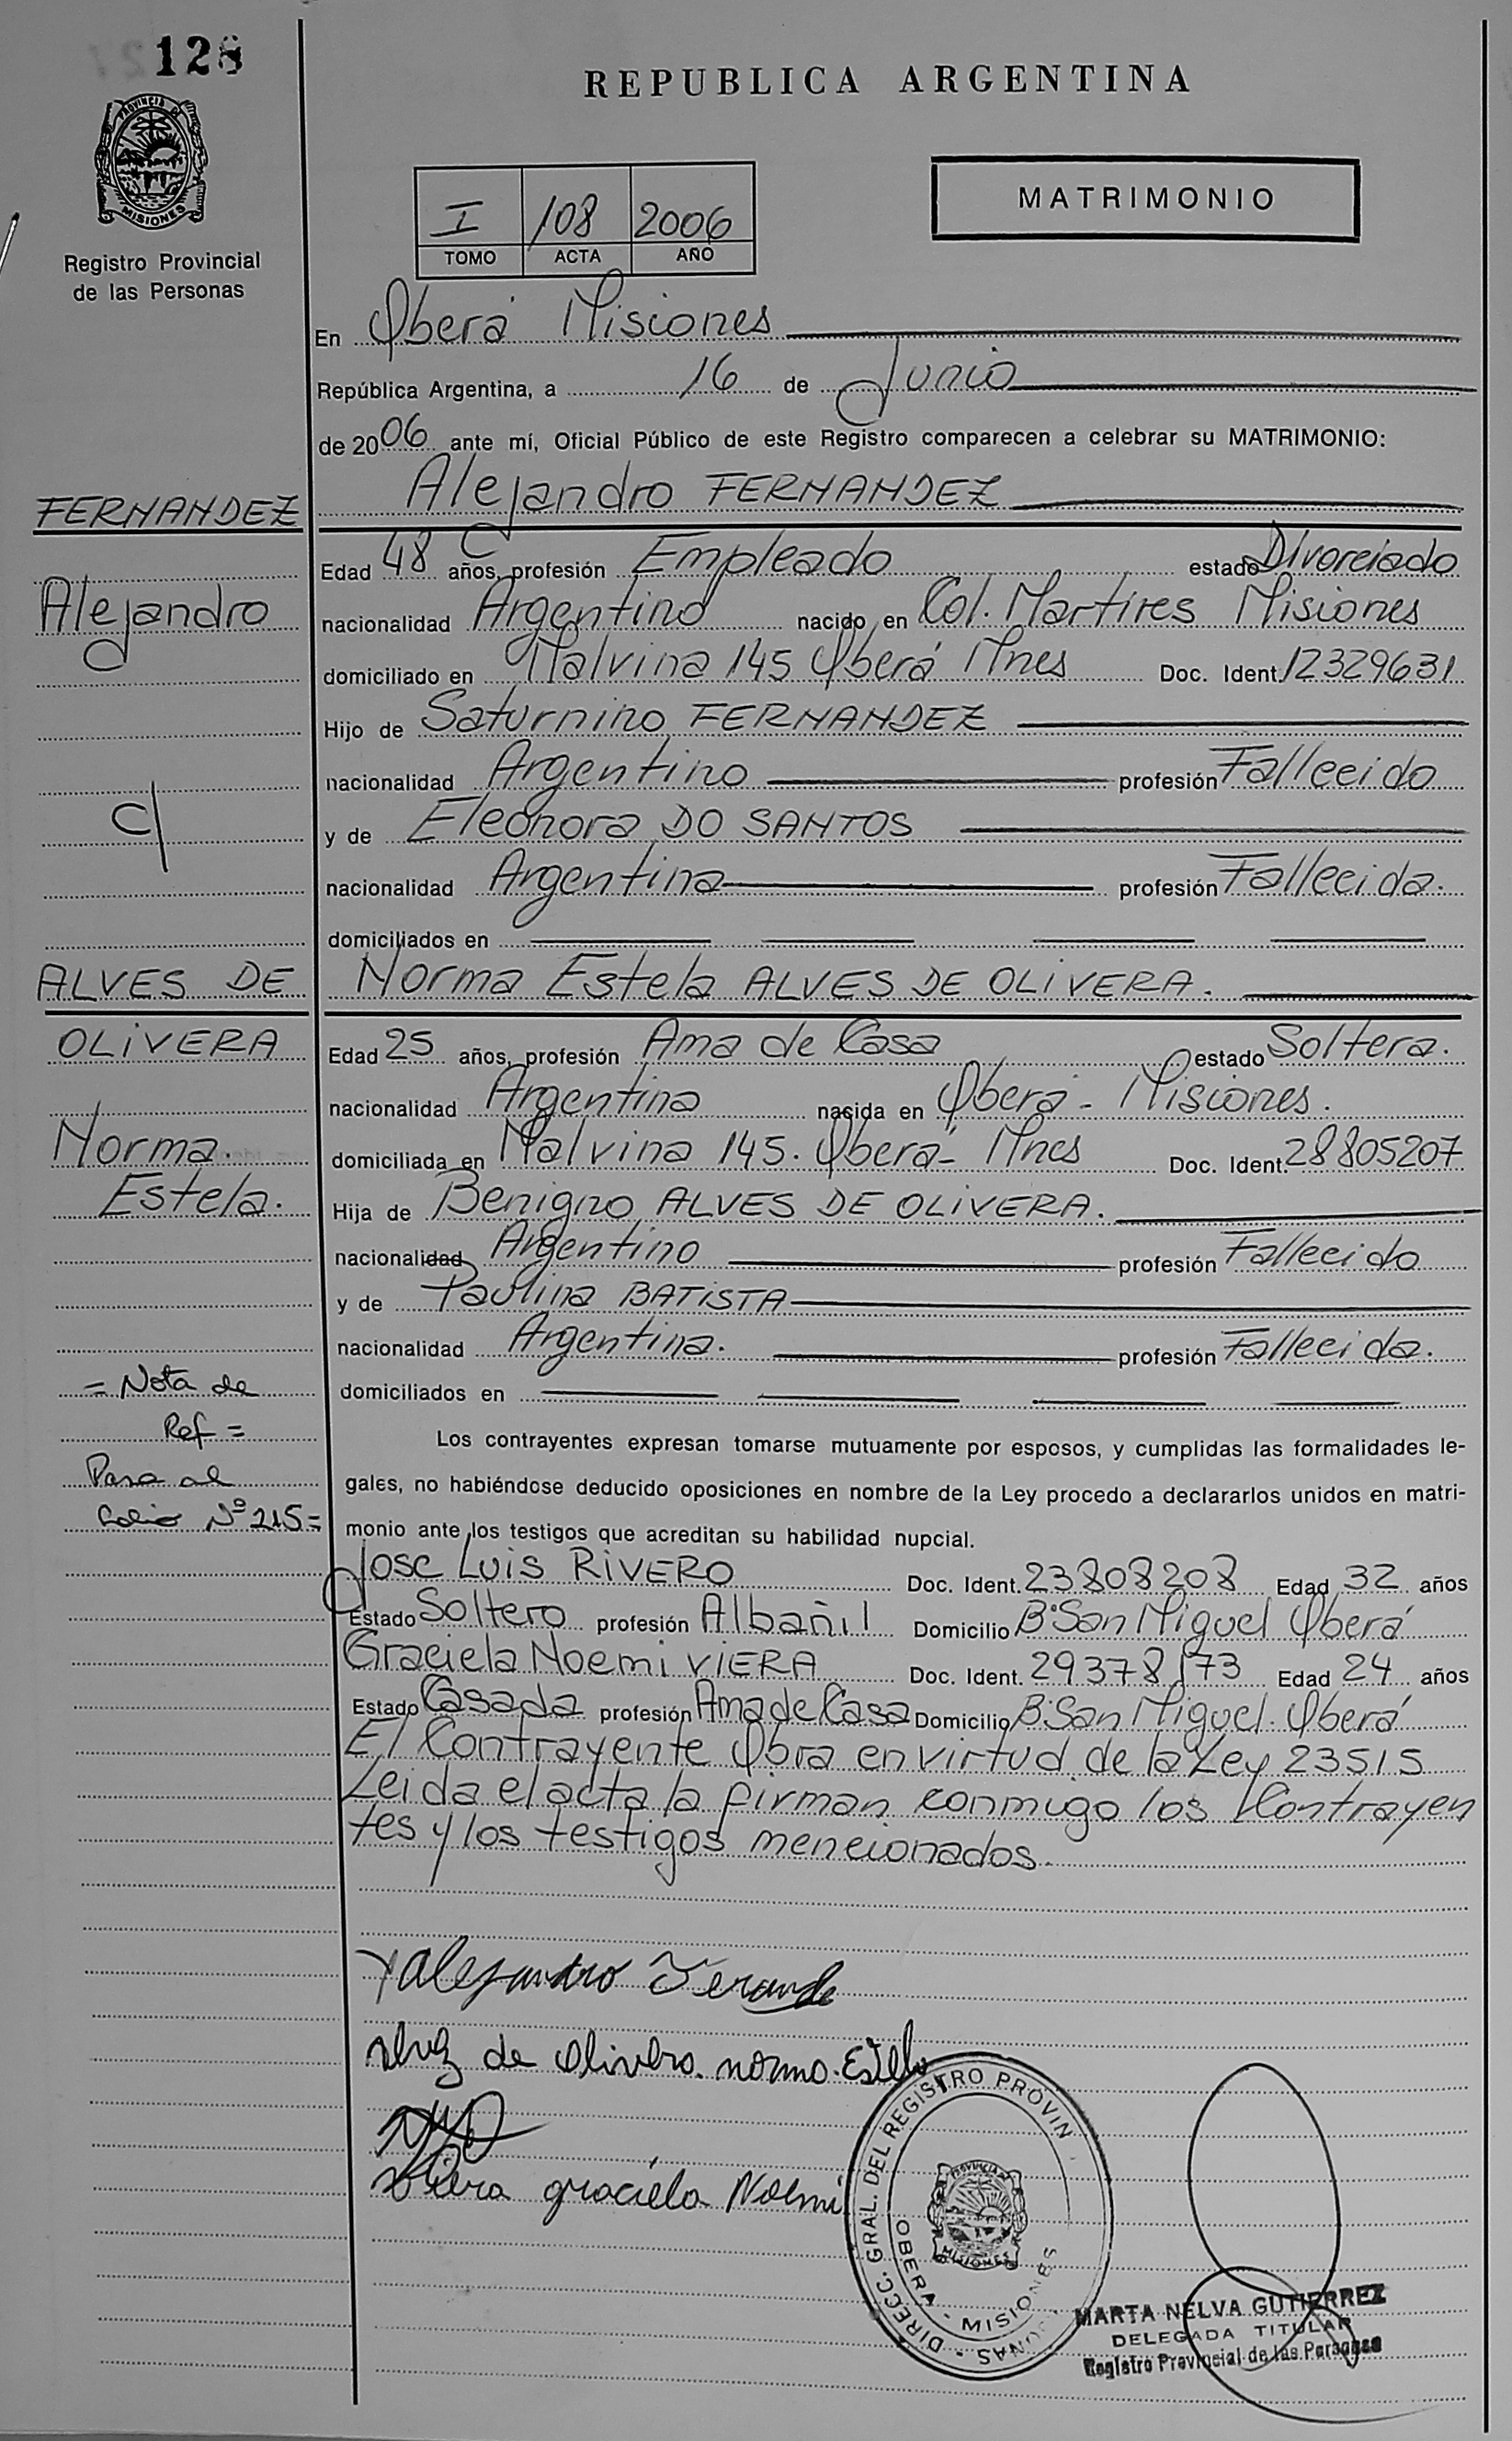 128
REPUBLICA ARGENTINA
PROVINCIA DE
MISIONES
Registro Provincial
de las Personas
MATRIMONIO
I 108 2006
TOMO ACTA AÑO
En Oberá Misiones
República Argentina, a 16 de Junio
de 2006 ante mí, Oficial Público de este Registro comparecen a celebrar su MATRIMONIO:
FERNANDEZ
Alejandro
c/
ALVES DE
OLIVERA
Norma.
Estela.
= Nota de
Ref =
Pasa al
Folio Nº 215 =
Alejandro FERNANDEZ
Edad 48 años, profesión Empleado estado Divorciado
nacionalidad Argentino nacido en Col. Martires Misiones
domiciliado en Malvina 145 Oberá Mnes Doc. Ident. 12329631
Hijo de Saturnino FERNANDEZ
nacionalidad Argentino profesión Fallecido
y de Eleonora DO SANTOS
nacionalidad Argentina profesión Fallecida.
domiciliados en
Norma Estela ALVES DE OLIVERA.
Edad 25 años, profesión Ama de Casa estado Soltera.
nacionalidad Argentina nacida en Oberá - Misiones.
domiciliada en Malvina 145. Oberá - Mnes Doc. Ident. 28805207
Hija de Benigno ALVES DE OLIVERA.
nacionalidad Argentino profesión Fallecido
y de Paulina BATISTA
nacionalidad Argentina. profesión Fallecida.
domiciliados en
Los contrayentes expresan tomarse mutuamente por esposos, y cumplidas las formalidades le-
gales, no habiéndose deducido oposiciones en nombre de la Ley procedo a declararlos unidos en matri-
monio ante los testigos que acreditan su habilidad nupcial.
Jose Luis RIVERO Doc. Ident. 23808208 Edad 32 años
Estado Soltero profesión Albañil Domicilio Bº San Miguel Oberá
Graciela Noemi VIERA Doc. Ident. 29378173 Edad 24 años
Estado Casada profesión Ama de Casa Domicilio Bº San Miguel. Oberá
El Contrayente Obra en virtud de la Ley 23515
Leida el acta la firman conmigo los Contrayen
tes y los testigos mencionados.
Alejandro
de Olivera. Norma. Estela
Viera graciela Noemi
DIRECC. GRAL. DEL REGISTRO PROVIN
OBERA - MISIONES
PROVINCIA DE
MISIONES
MARTA NELVA GUTIERREZ
DELEGADA TITULAR
Registro Provincial de las Personas